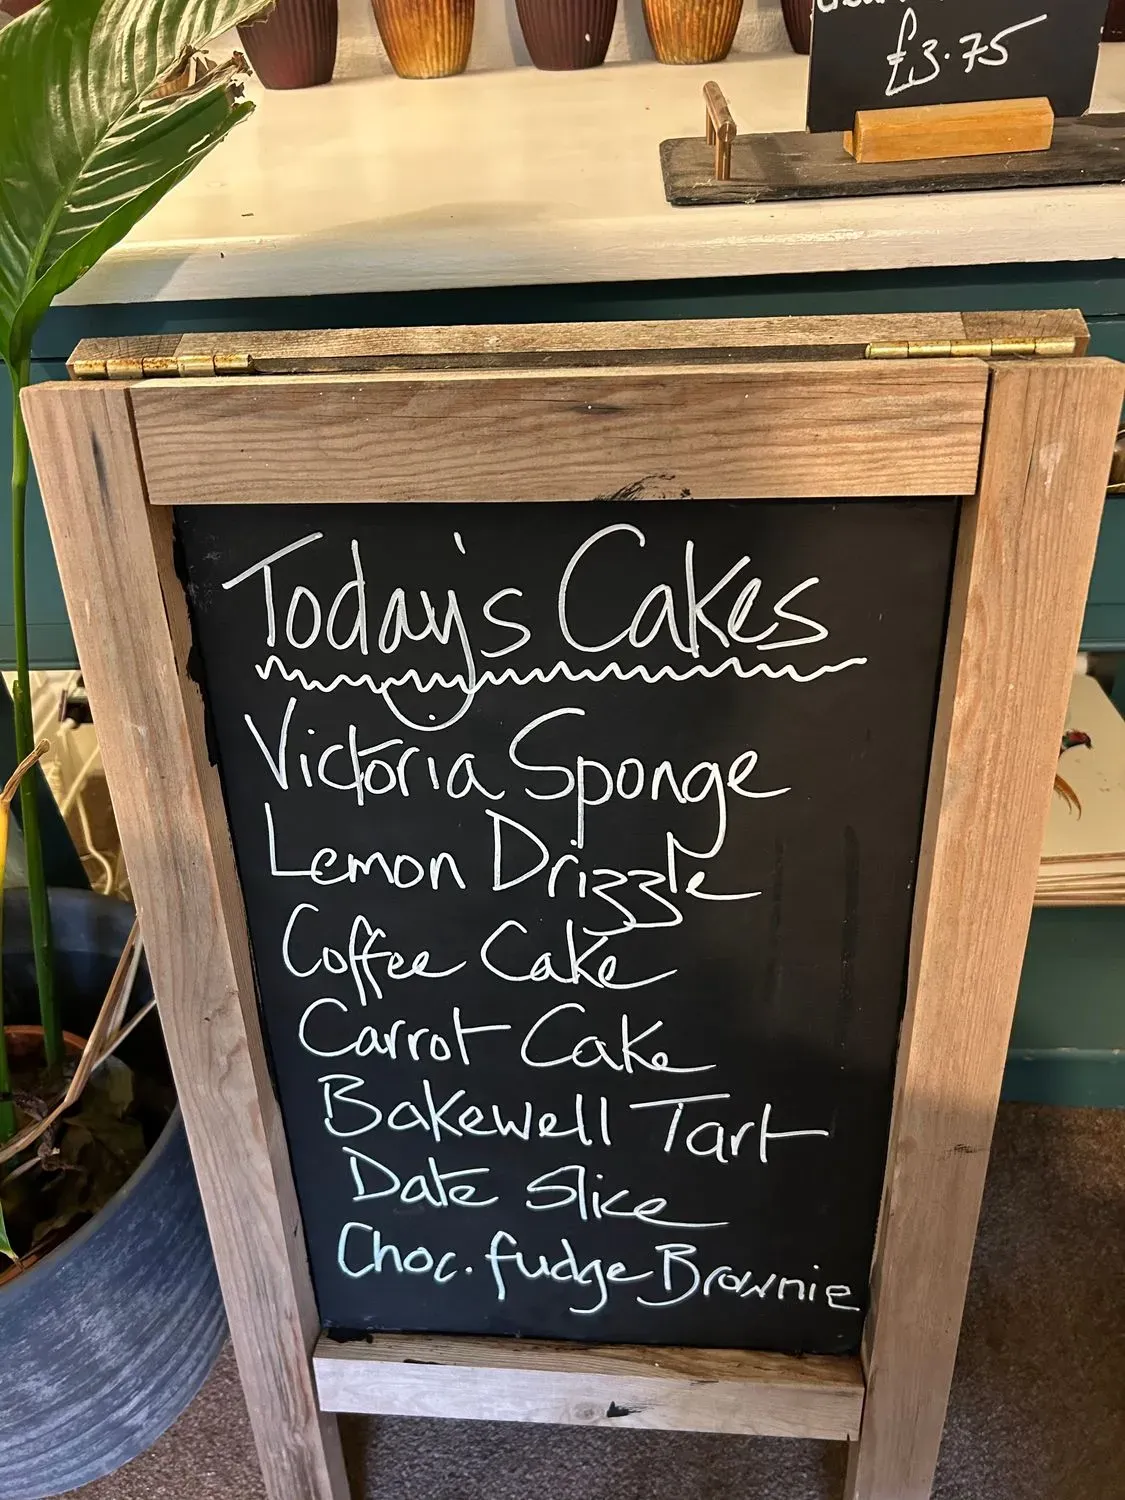 £3.75
Today's Cakes
Victoria Sponge
Lemon Drizzle
Coffee Cake
Carrot Cake
Bakewell Tart
Date Slice
Choc. fudge Brownie